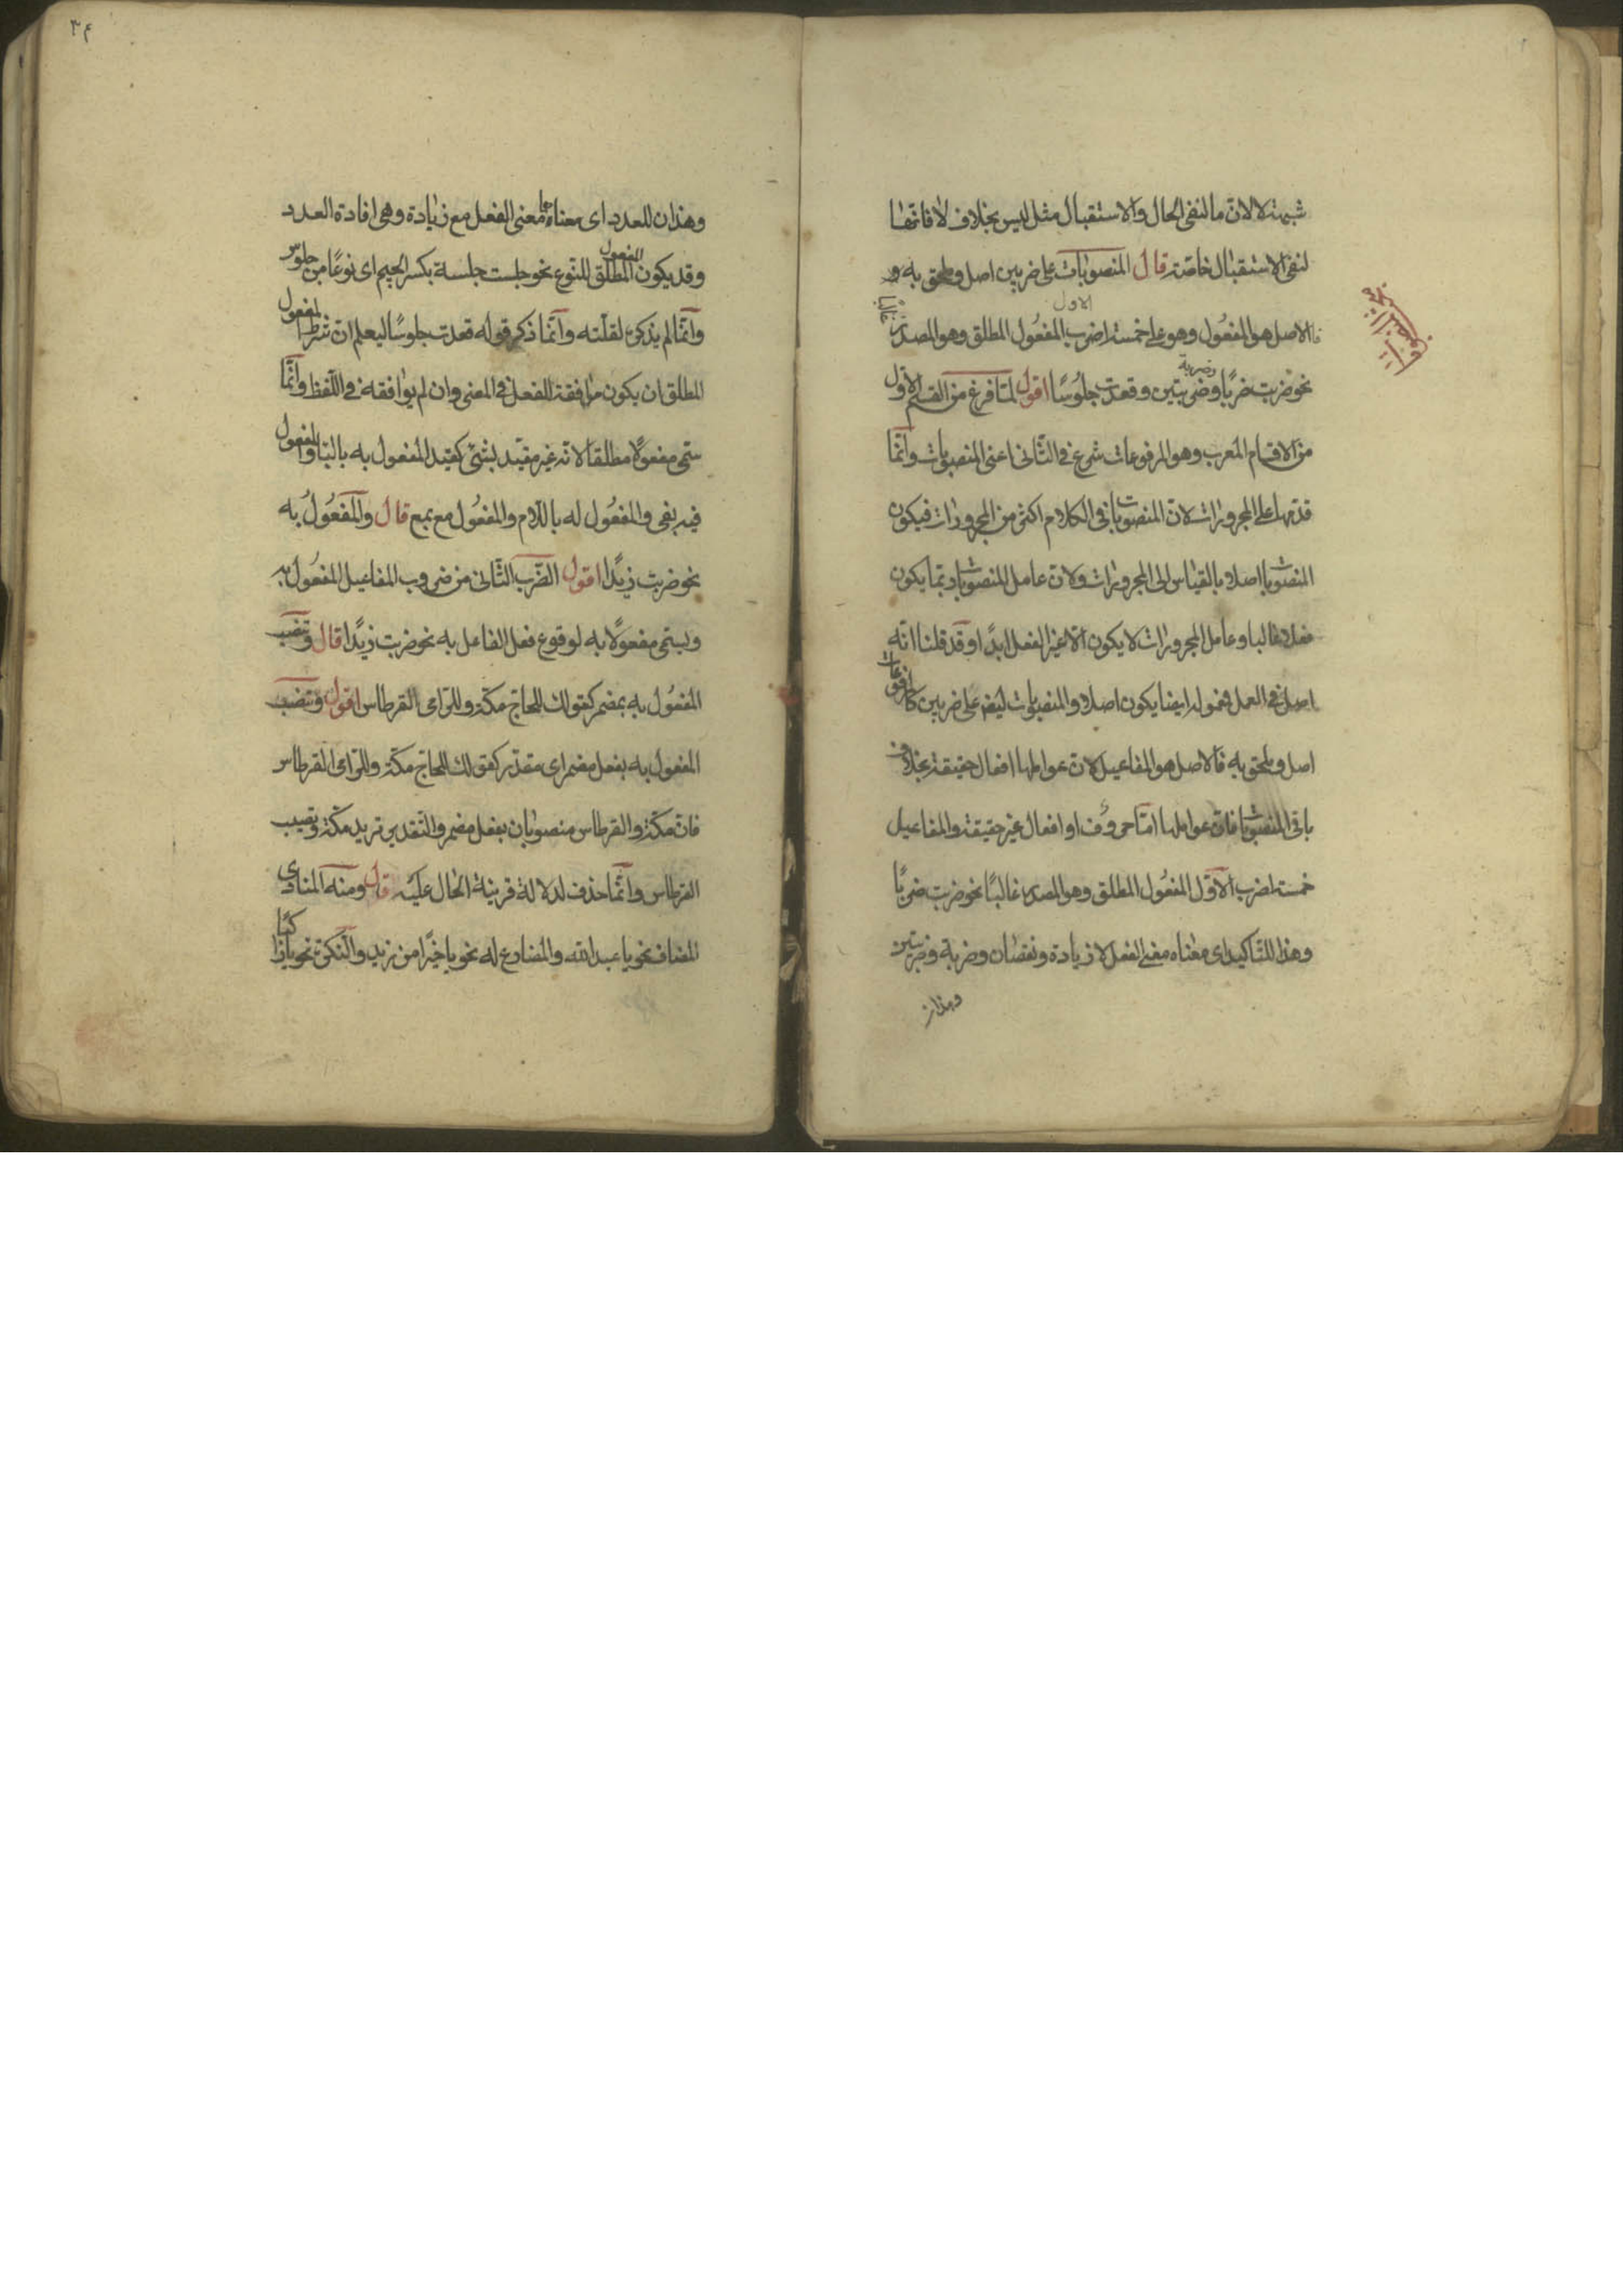 شبهة لا لان ما لنفى الحال والاستقبال مثل ليس بخلاف لا فانها
لنفى الاستقبال خاصة قال المنصوبات على ضربين اصل وملحق به و
الاول
فالاصل هو المفعول وهو على خمسة اضرب المفعول المطلق وهو المصدر
غالبا
وضربة
نحو ضربت ضربًا وضربتين وقعدت جلوسًا اقول لمّا فرغ من القسم الاول
من الاقسام المعرب وهو المرفوعات شرع فى الثّانى اعنى المنصوبات وانّما
قدّمها على المجرورات لان المنصوبات فى الكلام اكثر من المجرورات فيكون
المنصوبات اصلا بالقياس الى المجرورات ولان عامل المنصوبات ربّما يكون
فعلا غالبا وعامل المجرورات لا يكون الّا غير الفعل ابدًا وقد قلنا انّه
اصل فى العمل فمعموله ايضا يكون اصلا والمنصوبات ايضا على ضربين كالمرفوعات
اصل وملحق به فالاصل هو المفاعيل لان عواملها افعال حقيقة بخلاف
باقى المنصوبات فان عواملها امّا حروف او افعال غير حقيقة والمفاعيل
خمسة اضرب الاوّل المفعول المطلق وهو المصدر غالبًا نحو ضربت ضربًا
وهذا للتّاكيد اى معناه معنى الفعل لا زيادة ونقصان وضربة وضربتين
وهذان
المنصوبات
٣٤
وهذان للعدد اى معناهما معنى الفعل مع زيادة وهى افادة العدد
وقد يكون المفعول المطلق للنّوع نحو جلست جلسة بكسر الجيم اى نوعًا من جلوس
وانّما لم يذكره لقلّته وانّما ذكر قوله قعدت جلوسًا ليعلم ان شرط المفعول
المطلق ان يكون موافقة للفعل فى المعنى وان لم يوافقه فى اللّفظ وانّما
سمّى مفعولًا مطلقا لانّه غير مقيّد بشئ كقيد المفعول به بالباء والمفعول
فيه بفى والمفعول له باللّام والمفعول مع بمع قال والمفعول به
نحو ضربت زيدًا اقول الضّرب الثّانى من ضروب المفاعيل المفعول به
ويسمّى مفعولًا به لوقوع فعل الفاعل به نحو ضربت زيدًا قال وتنصب
المفعول به بمضمر كقولك للحاجّ مكّة وللرّامى القرطاس اقول وتنصب
المفعول به بفعل مضمر اى مقدّر كقولك للحاجّ مكّة وللرّامى القرطاس
فان مكّة والقرطاس منصوبان بفعل مضمر والتّقدير تريد مكّة وتصيب
القرطاس وانّما حذف لدلالة قرينة الحال عليه قال ومنه المنادى
المضاف نحو يا عبد الله والمضارع له نحو يا خيرًا من زيد والنّكرة نحو يا راكبًا